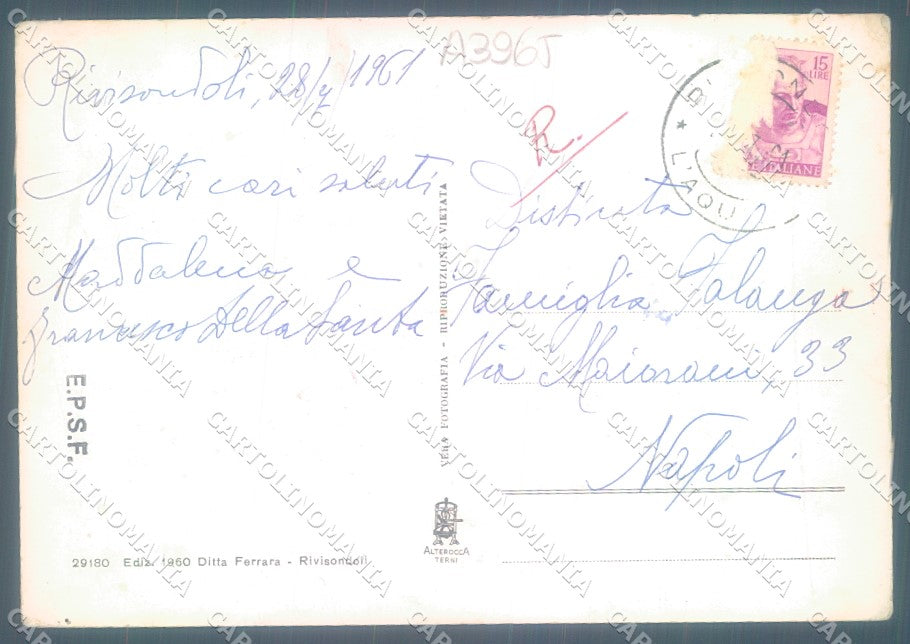 A396J
Rivisondoli, 28/ /1961
Molti cari saluti
Maddalena e
Francesco Della Santa
E.P.S.F.
29180 Ediz. 1960 Ditta Ferrara - Rivisondoli
VERA FOTOGRAFIA - RIPRODUZIONE VIETATA
ALTEROCCA
TERNI
R.
15
LIRE
ITALIANE
L'AQU
Distinta
Famiglia Falanga
Via 33
Napoli
CARTOLINOMANIA